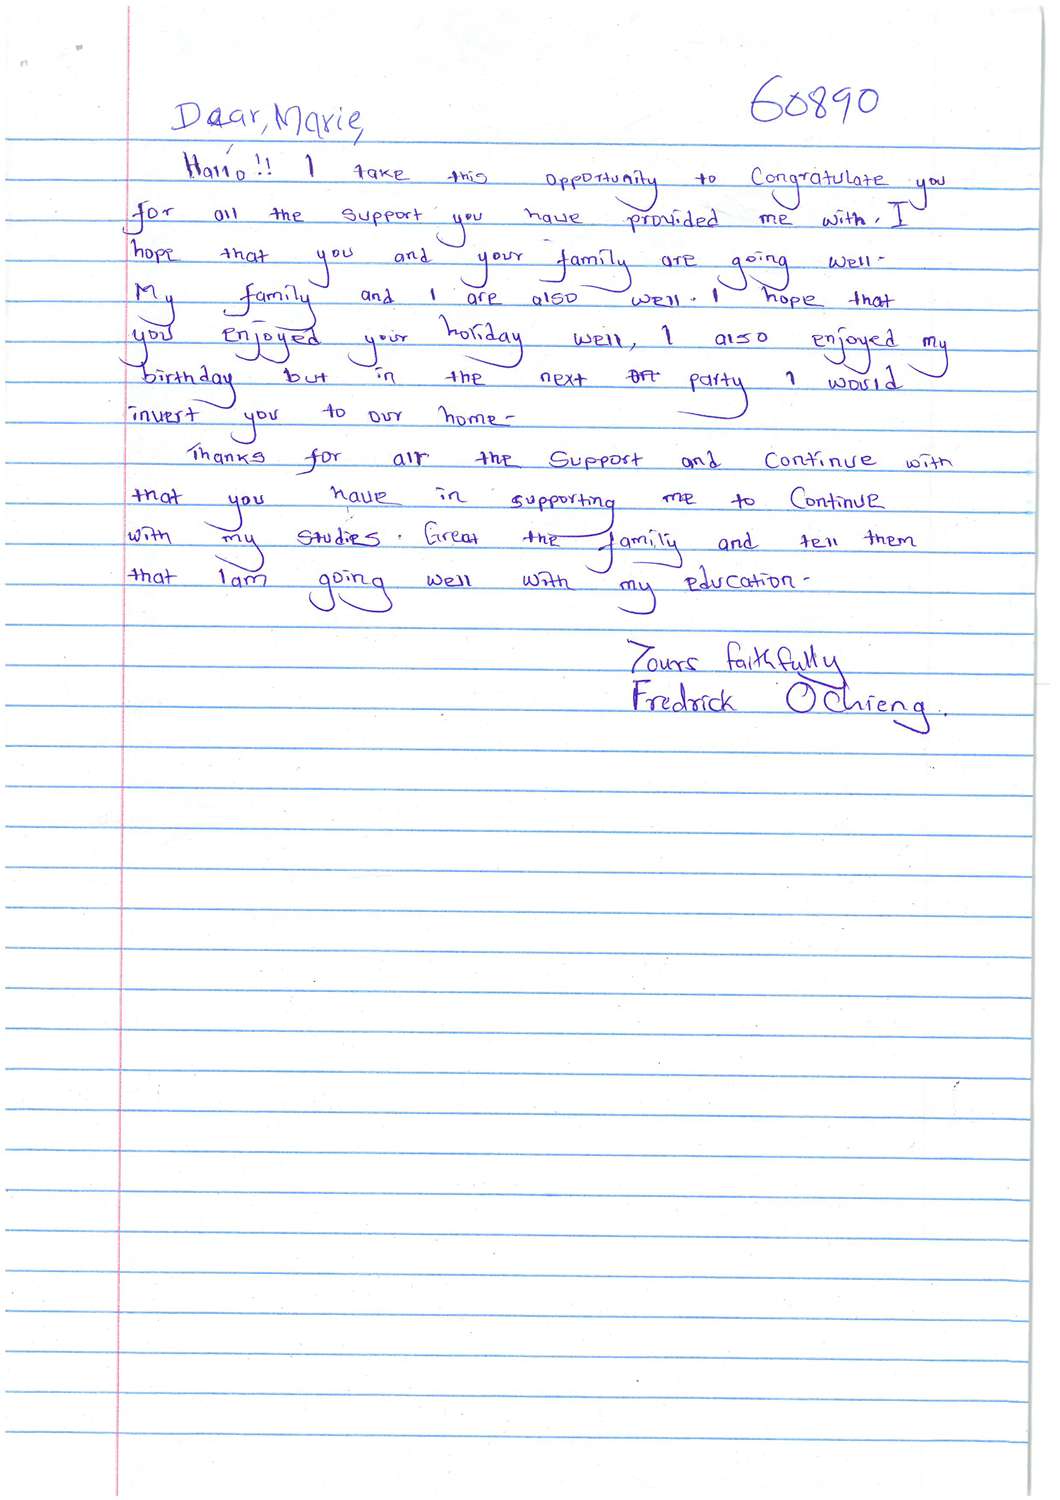 Dear, Marie, 60890
Hallo!! I take this opportunity to Congratulate you
for all the support you have provided me with. I
hope that you and your family are going well-
My family and I are also well. I hope that
you enjoyed your holiday well, I also enjoyed my
birthday but in the next party I would
invert you to our home-
Thanks for all the Support and Continue with
that you have in supporting me to Continue
with my studies. Great the family and tell them
that I am going well with my education-
Yours faithfully
Fredrick Ochieng.